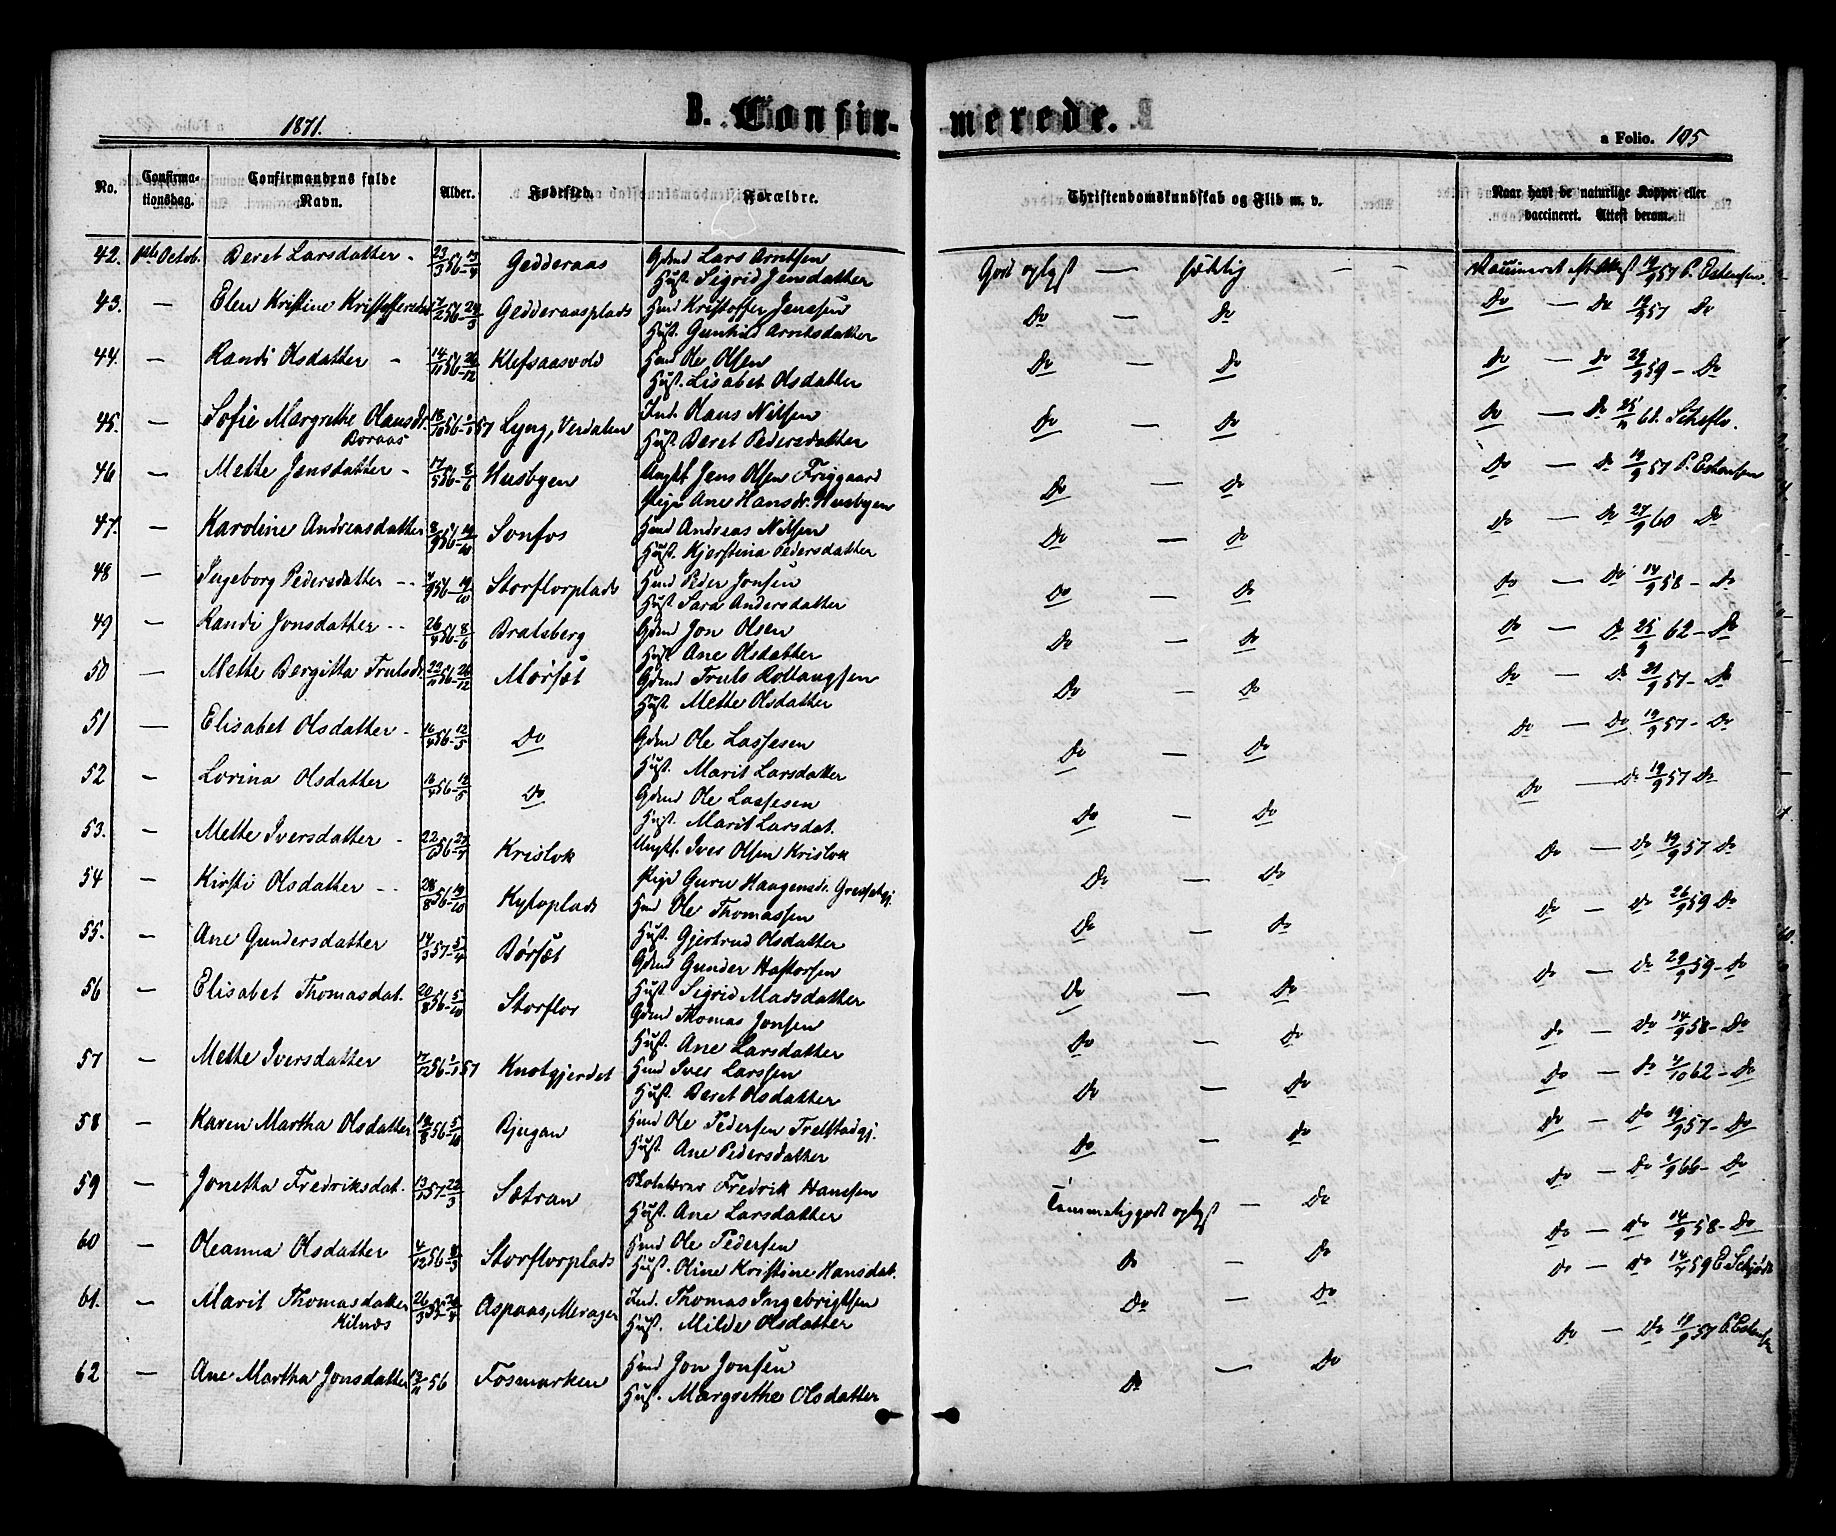 1871.
B. Confir-
merede.
a Folio. 105
No. Confirma-tionsdag. Confirmandens fulde Navn. Alder. Fødested. Forældre. Christendomskundskab og Flid m. v. Naar havt de naturlige Kopper eller vaccineret. Attest herom.
42. 1ste Octob. Beret Larsdatter - 23/3 56 Gedderaas Gdmd Lars Arntsen Godt oplyst — sædelig — Vaccineret Attest 19/9 57 P. Estensen.
Hust. Sigrid Jensdatter
43. — Elen Kristine Kristoffersdat 56 Gedderaasplads Hmd Kristoffer Jenssen Do — Do Do — Do 19/9 57 Do
Hust. Gunhild Arntsdatter
44. — Randi Olsdatter - 14/11 56 26/12 Klefsaasvold Hmd Ole Olsen Do — Do Do — Do 29/9 59 - Do
Hust. Lisabet Olsdatter
45. — Sofie Margrethe Olausdr. 18/10 56 - 1/1 57 Lyng, Verdalen Ind. Olaus Nilsen Do — Do Do — Do Scheflo.
Boraas Hust. Beret Pedersdatter
46 — Mette Jensdatter - 17/5 56 - 8/6 Husbyen Ungkl Jens Olsen Friggaard Do — Do Do — Do 19/9 57 P. Estensen
Pige Ane Hansdr. Husbyen
47. — Karoline Andreasdatter 8/9 56 19/10 Sonfos Hmd Andreas Nilsen Do — Do Do — Do 27/9 60 Do
Hust. Kjerstina Pedersdatter
48 — Ingeborg Pedersdatter - - 56 - 19/10 Storflorplads Hmd Peder Jonsen Do — Do Do — Do 14/9 58 - Do
Hust. Sara Andersdatter
49 — Randi Jonsdatter - - 26/4 56 8/6 Bratsberg Gdmd Jon Olsen Do — Do Do — Do 25/9 62 - Do
Hust. Ane Olsdatter
50 — Mette Bergitta Trulsdr. 22/11 56 - 26/12 Mørset Gdmd Truls Rollaugsen Do — Do Do — Do 57 - Do
Hust. Mette Olsdatter
51 — Elisabet Olsdatter - 16/4 56 - 12/5 Do Gdmd Ole Lassesen Do — Do Do — Do 19/9 57 - Do
Hust. Marit Larsdatter
52 — Lorina Olsdatter 16/4 56 - 12/5 Do Gdmd Ole Lassesen Do — Do Do — Do 19/9 57 Do
Hust. Marit Larsdat.
53. — Mette Iversdatter - 22/6 56 27/7 Krislok Ungkl. Iver Olsen Krislok Do — Do Do — Do 19/9 57 Do
Pige Guru Haagensdr.
54 — Kirsti Olsdatter - - 28/8 56 19/10 Kyloplads Hmd Ole Thomassen Do — Do Do — Do 26/9 59 Do
Hust. Gjertrud Olsdatter
55. — Ane Gundersdatter 14/3 57 - 5/4 Børset Gdmd Gunder Hastorsen Do — Do Do — Do 29/9 59 - Do
Hust. Sigrid Madsdatter
56 — Elisabet Thomasdat. 20/8 56 - 5/10 Storflor Gdmd Thomas Jonsen Do — Do Do — Do 14/9 58 - Do
Hust. Ane Larsdatter
57 — Mette Iversdatter 17/12 56 1/1 57 Knotgjerdet Hmd Iver Larssen Do — Do Do — Do 62 - Do
Hust. Beret Olsdatter
58 — Karen Martha Olsdatter 18/8 56 5/10 Bjugan Hmd Ole Pedersen Do — Do Do — Do 19/9 57 - Do
Hust. Ane Pedersdatter
59 — Jonetha Fredriksdat. 13/1 57 - 22/3 Sætran Fredrik Hanssen Temmelig godt oplyst — Do Do — Do 66 - Do
Hust. Ane Larsdatter
60 — Oleanna Olsdatter 4/12 56 8/3 Storflorplads Hmd Ole Pedersen Do — Do Do — Do 14/9 58 - Do
Hust. Oline Kristine Hansdat.
61. — Marit Thomasdatter 26/3 Aspaas, Meraker Ind. Thomas Ingebrigtsen Do — Do Do — Do 59 E Schjødt
Kilnæs Hust. Milde Olsdatter
62 — Ane Martha Jonsdatter 13/11 56 Fosmarken Hmd Jon Jonsen Do — Do Do — Do 19/9 57 P. Estensen
Hust. Margrethe Olsdatter